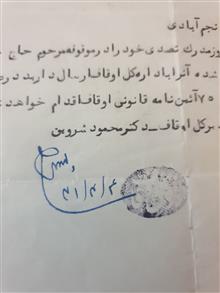 نجم آبادی
وز مدرك تصدی خود را در موقوفه مرحوم حاج
شده آنرا باداره كل اوقاف ارسال دارید در
۷۵ آئین نامه قانونی اوقاف اقدام خواهد
یركل اوقاف - دكتر محمود شروین
۳۱/۴/۴